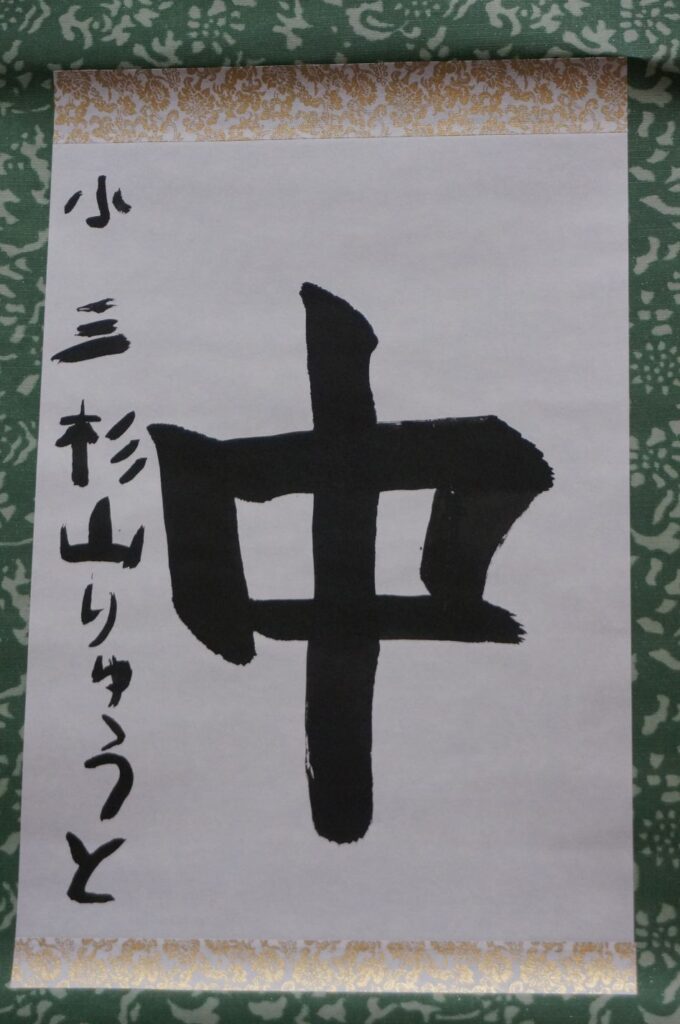 中
小三杉山りゅうと